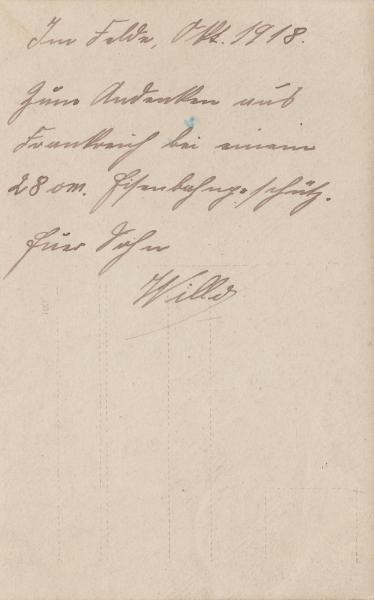 Im Felde, Okt. 1918.
Zum Andenken aus
Frankreich bei einem
28 cm. Eisenbahngeschütz.
Euer Sohn
Willy